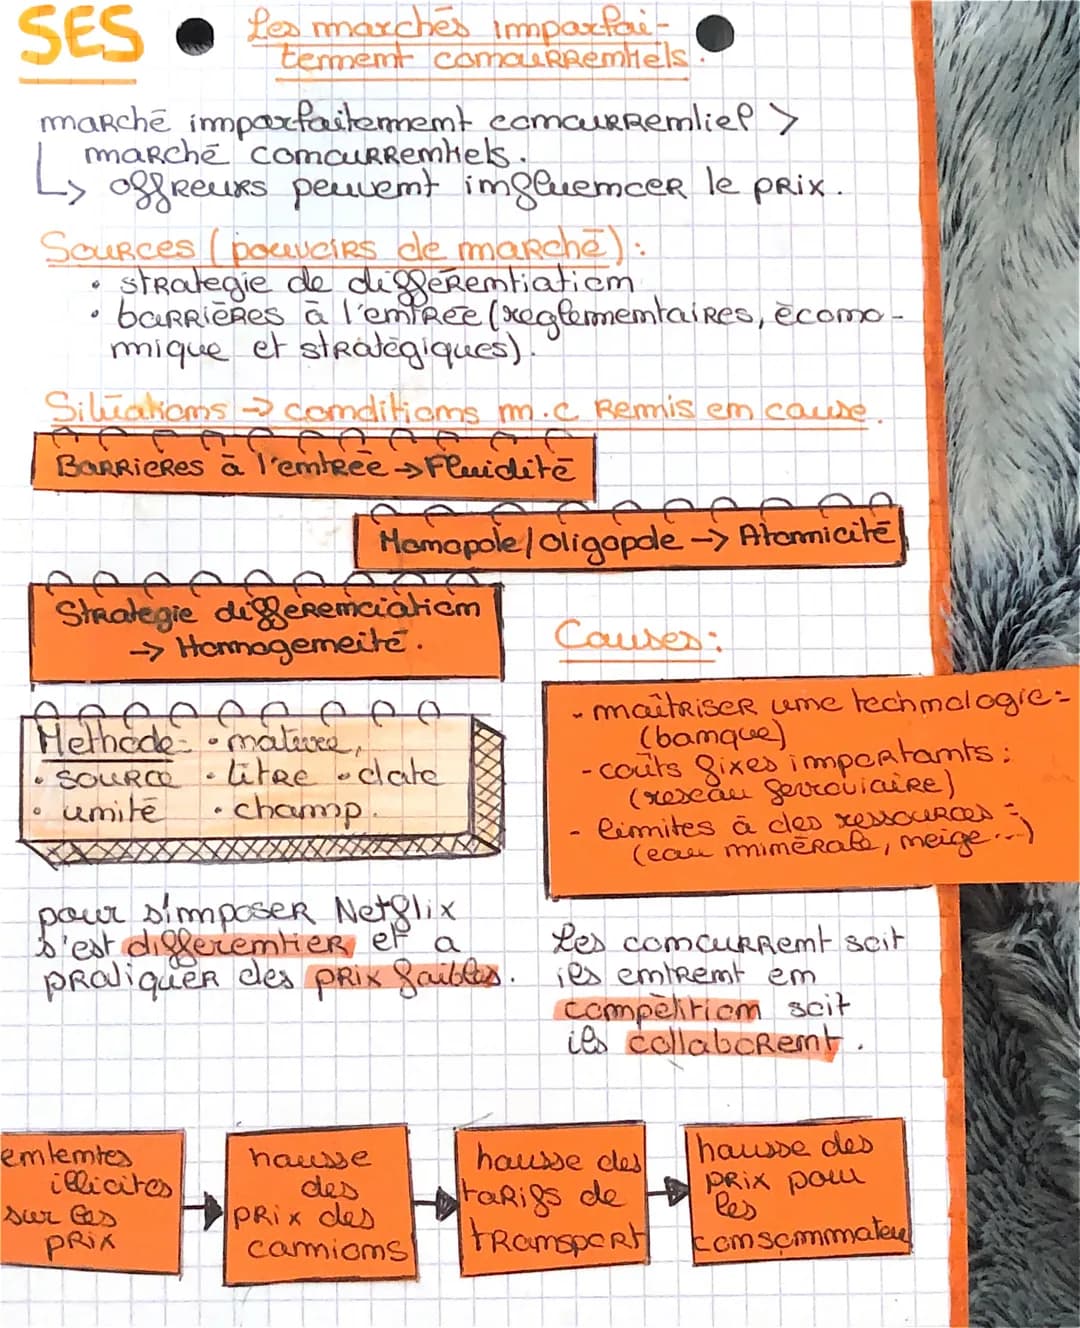 SES
Les marchés imparfai-
tement concurrentiels.
marché imparfaitement concurrentiel >
marché concurrentiels.
↳ offreurs peuvent influencer le prix.
Sources (pouvoirs de marché):
• strategie de différentiation
• barrières à l'entrée (reglementaires, écono-
mique et stratégiques).
Situations → conditions m.c remis en cause.
Barrieres à l'entrée → Fluidité
Monopole/oligopole → Atomicité
Strategie differenciation
→ Homogeneité.
Causes:
- maîtriser une technologie:
(banque)
- couts fixes importants:
(reseau ferroviaire)
- limites à des ressources:
(eau minérale, neige...)
Methode: • nature,
• source • titre • date
• unité • champ.
pour s'imposer Netflix
s'est differentier et a
pratiquer des prix faibles.
Les concurrent soit
ils entrent en
compètition soit
ils collaborent.
ententes
illicites
sur les
prix
hausse
des
prix des
camions
hausse des
tarifs de
transport
hausse des
prix pour
les
consommateu